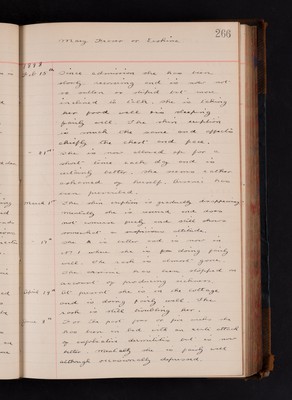 266
Mary Fraser or Erskine
1898
Feb 15th Since admission she has been
slowly recovering and is now not
so sullen or stupid but more
inclined to talk. She is taking
her food well and sleeping
fairly well. The skin eruption
is much the same and affects
chiefly the chest and face.
She is now allowed up for a
short time each day and is
better. She seems rather
ashamed of herself.
been prevented.
March 1st The skin eruption is gradually disappearing
mentally she is and does
not converse freely and still shows
somewhat a suspicious attitude.
She is rather and is now in
where she is doing fairly
well. The rash is almost gone.
The has been stopped on
account of producing
April 18th At present she is at the cottage
and is doing fairly well. The
rash is still troubling her.
For the past four or five weeks she
has been in bed with an acute attack
of but is now
better. Mentally she is fairly well
although occasionally depressed.